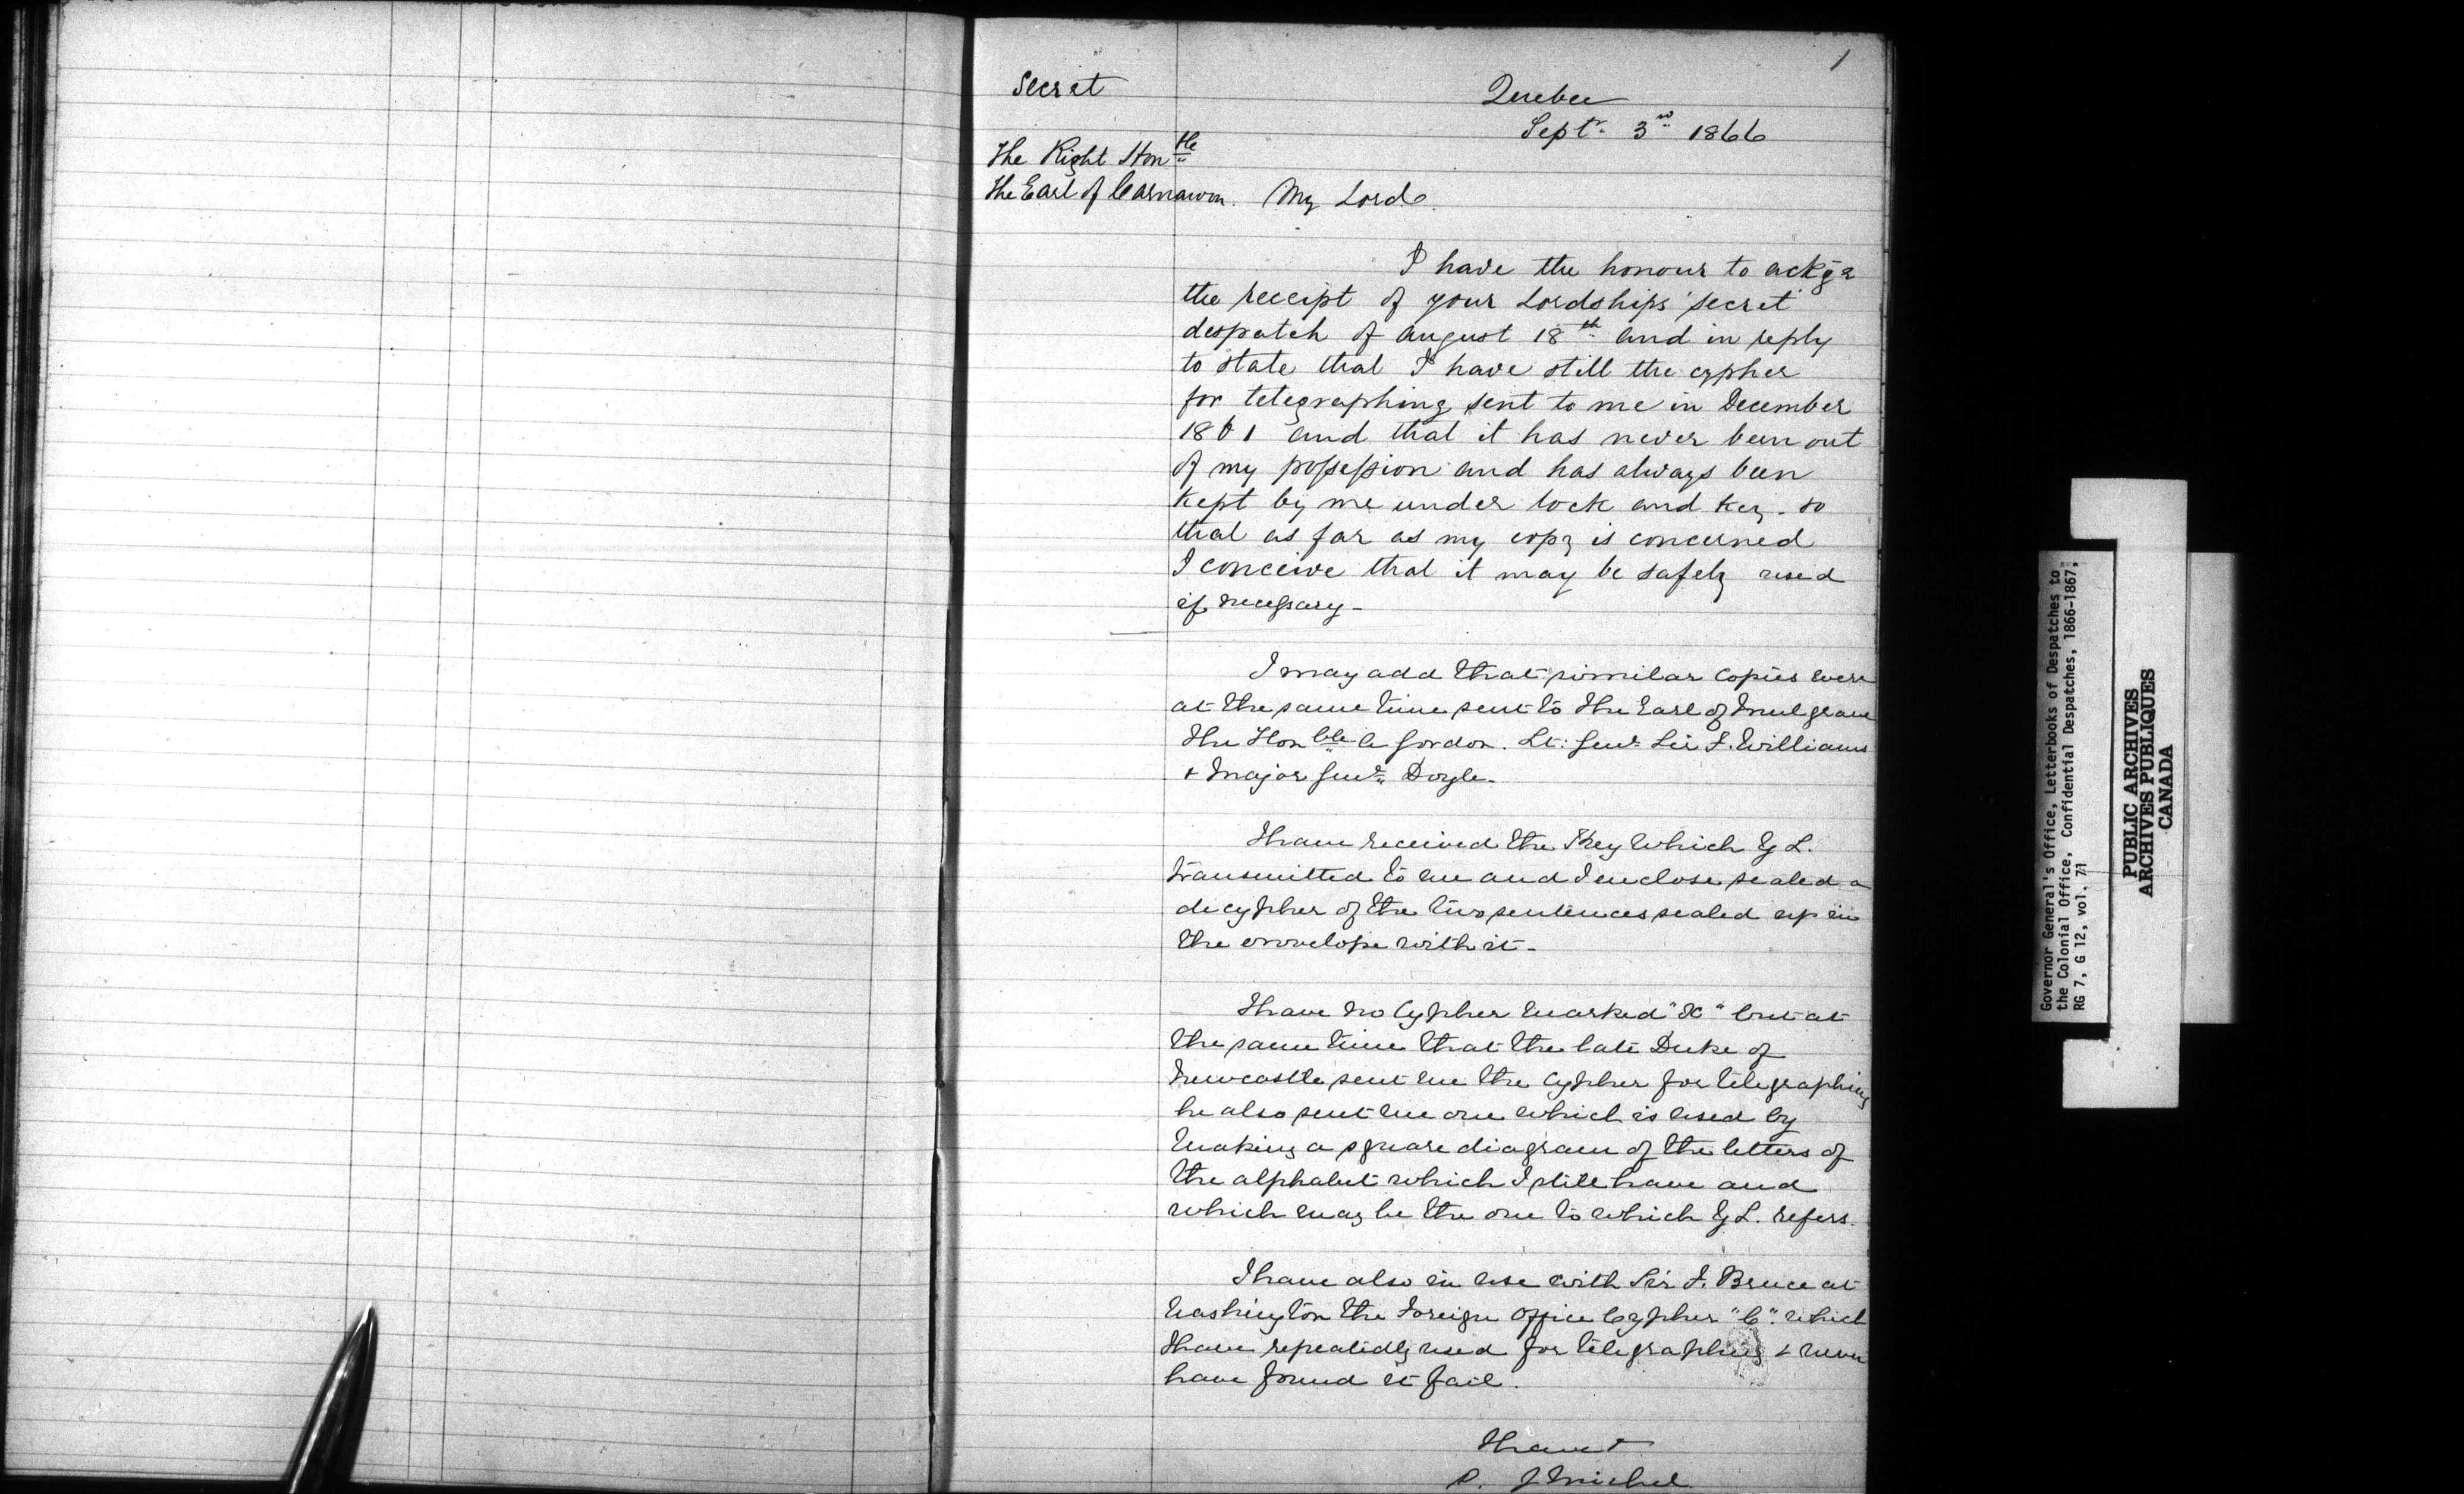 1
Secret
Quebec
Septr. 3rd 1866
The Right Honble
The Earl of Carnarvon. My Lord.
I have the honour to ackge
the receipt of your Lordships 'secret'
despatch of August 18th and in reply
to state that I have still the cypher
for telegraphing sent to me in December
1861 and that it has never been out
of my possession and has always been
kept by me under lock and key. so
that as far as my copy is concerned
I conceive that it may be safely used
if necessary-
I may add that similar copies were
at the same time sent to The Earl of Mulgrave
The Honble A Gordon. Lt: Genl. Sir F. Williams
& Major Genl. Doyle.
I have received the Key which Y L.
transmitted to me and I enclose sealed a
decypher of the two sentences sealed up in
the envelope with it-
I have no Cypher marked "X" but at
the same time that the late Duke of
Newcastle sent me the Cypher for telegraphing
he also sent me one which is used by
making a square diagram of the letters of
the alphabet which I still have and
which may be the one to which Y L. refers.
I have also in use with Sir F. Bruce at
Washington the Foreign Office Cypher "C". which
I have repeatedly used for telegraphing & never
have found it fail.
I have
J Michel.
Governor General's Office, Letterbooks of Despatches to
the Colonial Office, Confidential Despatches, 1866-1867,
RG 7, G 12, vol. 71
PUBLIC ARCHIVES
ARCHIVES PUBLIQUES
CANADA